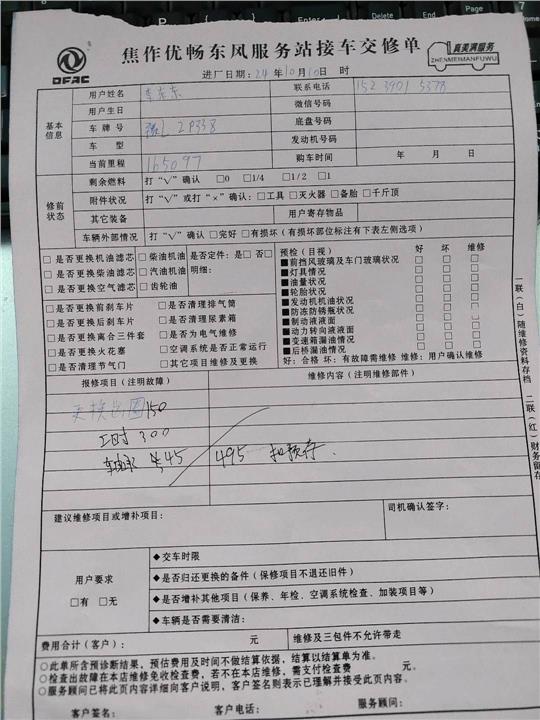 DFAC
焦作优畅东风服务站接车交修单
真美满服务
ZHENMEIMANFUWU
进厂日期：24年10月10日 时
基本信息
用户姓名 联系电话
用户生日 微信号码
车牌号 2P338 底盘号码
车型 发动机号码
当前里程 165097 购车时间 年 月 日
修前状态
剩余燃料 打“√”确认 □0 □1/4 □1/2 □1
附件状况 打“√”或打“×”确认：□工具 □灭火器 □备胎 □千斤顶
其它装备 用户寄存物品
车辆外部情况 打“√”确认 □完好 □有损坏（有损坏部位标注有下表左侧选项）
□是否更换机油滤芯 □柴油机油 是否定件：是□ 否□
□是否更换柴油滤芯 □汽油机油 明细：
□是否更换空气滤芯 □齿轮油
□是否更换前刹车片 □是否清理排气筒
□是否更换后刹车片 □是否清理尿素箱
□是否更换离合三件套 □是否为电气维修
□是否更换火花塞 □空调系统是否正常运行
□是否清理节气门 □其它项目维修及更换
预检（目视） 好 坏 维修
■前挡风玻璃及车门玻璃状况 □ □ □
■灯具情况 □ □ □
■油量状况 □ □ □
■轮胎状况 □ □ □
■发动机机油状况 □ □ □
■防冻防锈瓶状况 □ □ □
■制动液液面 □ □ □
■动力转向液液面 □ □ □
■变速箱漏油情况 □ □ □
■后桥漏油情况 □ □ □
好：合格 坏：有故障需维修 维修：用户确认维修
报修项目（注明故障） 维修内容（注明维修部件）
更换 150
工时 300
45 495 扣预存.
建议维修项目或增补项目： 司机确认签字：
用户要求
□有 □无
◆交车时限
◆是否归还更换的备件（保修项目不退还旧件）
◆是否增补其他项目（保养、年检、空调系统检查、加装项目等）
◆车辆是否需要清洁：
费用合计（客户）： 元 维修及三包件不允许带走
○此单所含预诊断结果，预估费用及时间不做结算依据，结算以结算单为准。
○检查出故障在本店维修免收检查费，若不在本店维修，需支付检查费 元。
○服务顾问已将此页内容详细向客户说明，客户签名则表示已理解并接受此页内容。
客户签名： 客户电话： 服务顾问：
一联（白）随维修资料存档 二联（红）财务留存